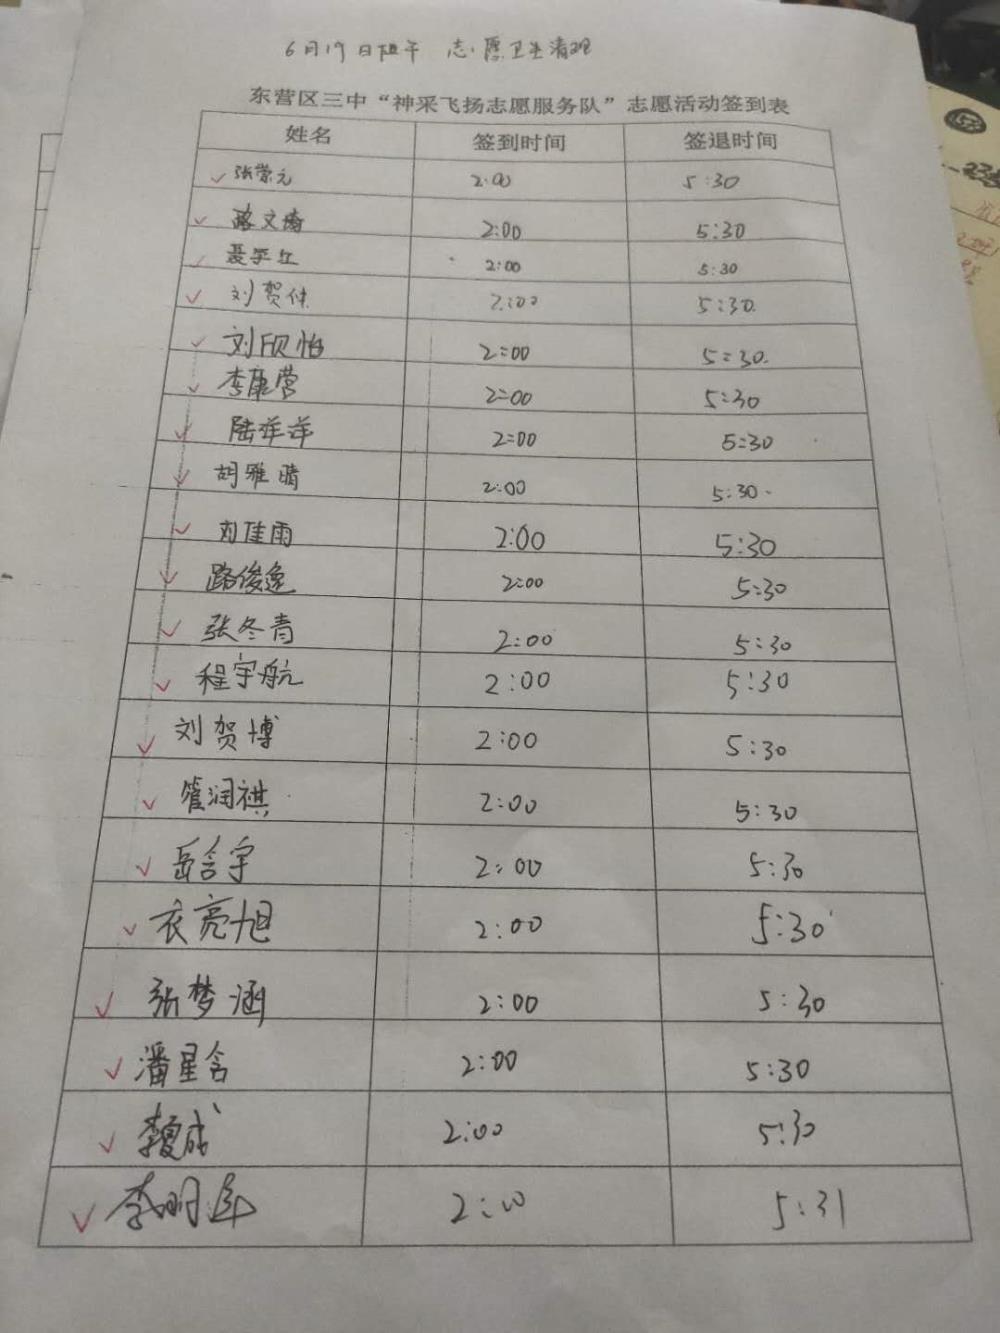 6月19日下午 志愿卫生清理
东营区三中“神采飞扬志愿服务队”志愿活动签到表
姓名 签到时间 签退时间
张荣元 2:00 5:30
2:00 5:30
2:00 5:30
刘贺 2:00 5:30
刘欣怡 2:00 5:30
李康营 2:00 5:30
陆祥祥 2:00 5:30
胡雅晴 2:00 5:30
刘佳雨 2:00 5:30
路俊逸 2:00 5:30
张冬青 2:00 5:30
程宇航 2:00 5:30
刘贺博 2:00 5:30
管润祺 2:00 5:30
岳含宇 2:00 5:30
衣亮旭 2:00 5:30
张梦涵 2:00 5:30
潘星含 2:00 5:30
李夏成 2:00 5:30
李明 2:00 5:31